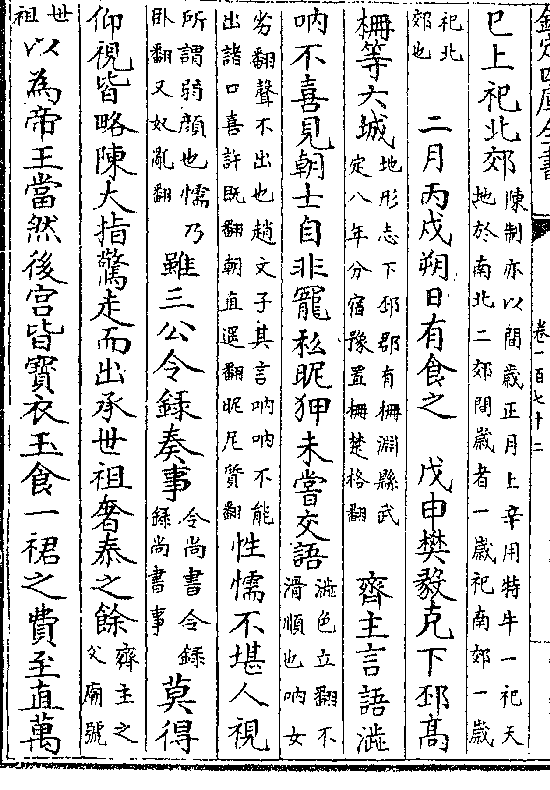 欽定四庫全書
卷一百七十二
巳上祀北郊陳制亦以間歲正月上辛用特牛一祀天地於南北二郊間歲者一歲祀南郊一歲
祀北郊也　二月丙戌朔日有食之　戊申樊毅克下邳高
柵等六城地形志下邳郡有柵淵縣武定八年分宿豫置柵楚格翻　齊主言語澁
吶不喜見朝士自非寵私昵狎未嘗交語澁色立翻不滑順也吶女
劣翻聲不出也趙文子其言吶吶不能出諸口喜許既翻朝直遥翻昵尼質翻性懦不堪人視
所謂弱顔也懦乃卧翻又奴亂翻雖三公令録奏事令尚書令録録尚書事莫得
仰視皆略陳大指驚走而出承世祖奢泰之餘齊主之父廟號
世祖以為帝王當然後宫皆寳衣玉食一裙之費至直萬